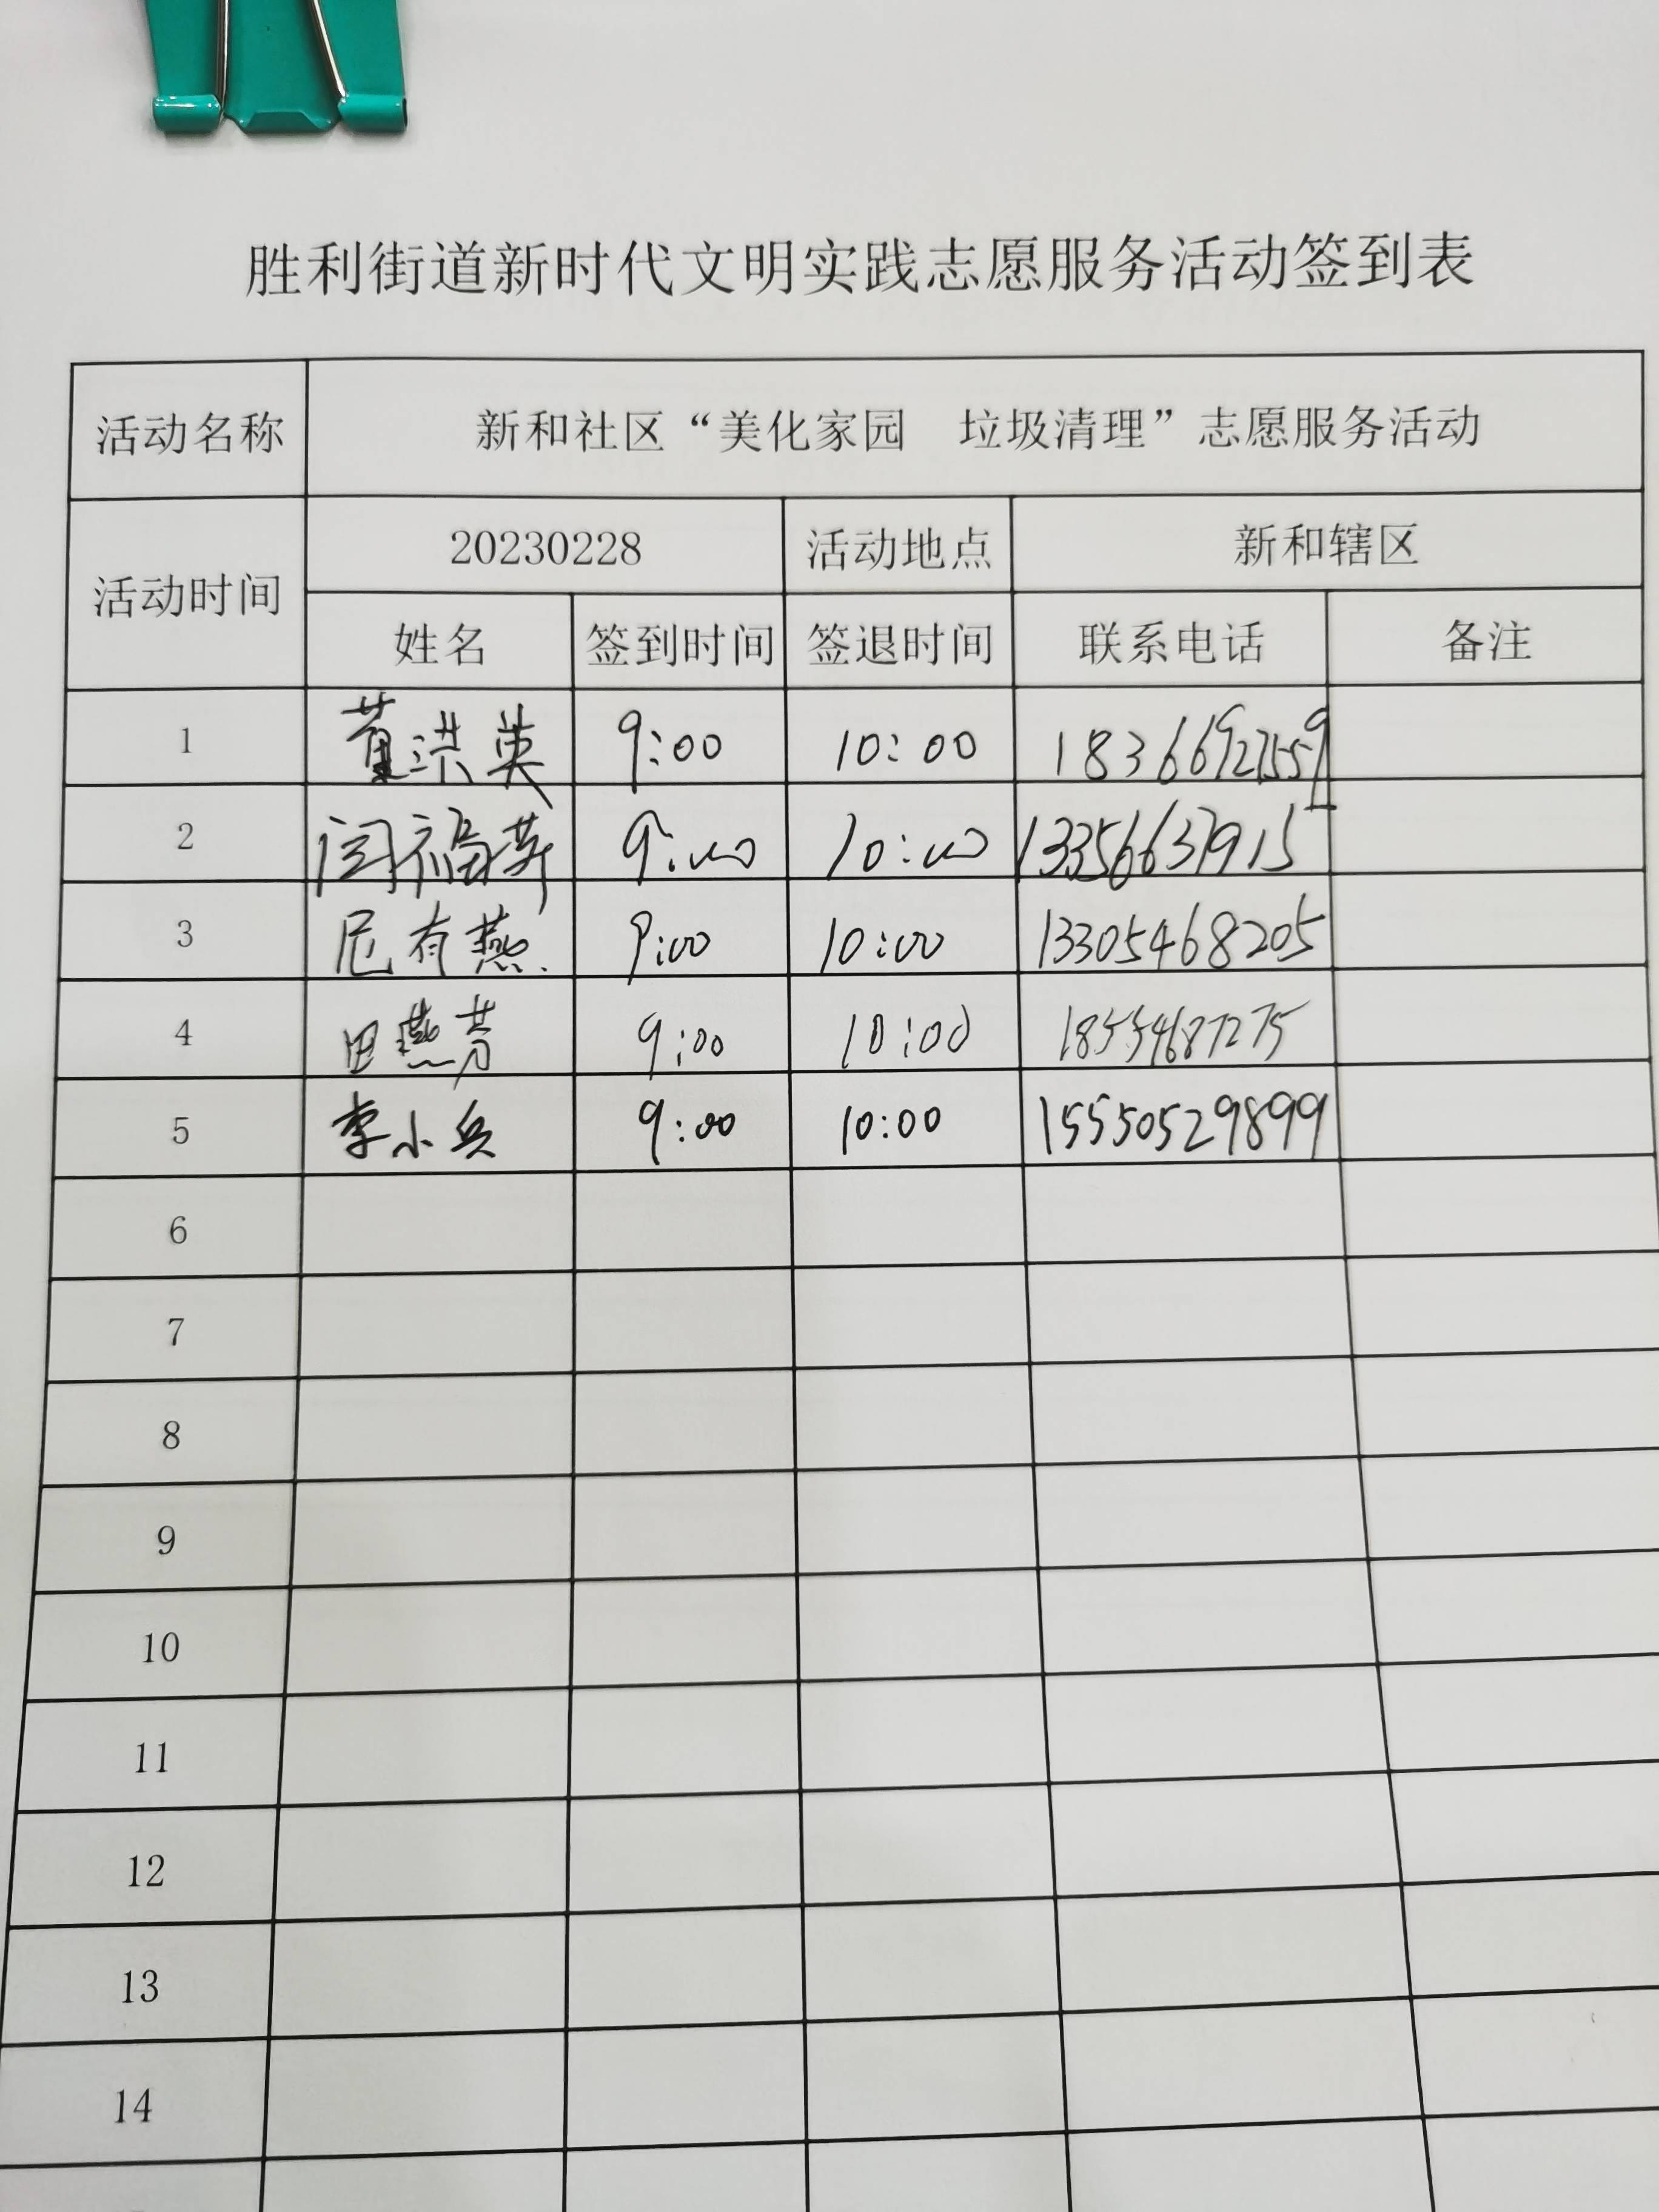 胜利街道新时代文明实践志愿服务活动签到表
活动名称 新和社区“美化家园 垃圾清理”志愿服务活动
活动时间 20230228 活动地点 新和辖区
姓名 签到时间 签退时间 联系电话 备注
1 董洪英 9:00 10:00 18366927559
2 闫福萍 9:00 10:00 13356637915
3 尼有燕 9:00 10:00 13305468205
4 田燕芳 9:00 10:00 18554687275
5 李小兵 9:00 10:00 15550529899
6
7
8
9
10
11
12
13
14